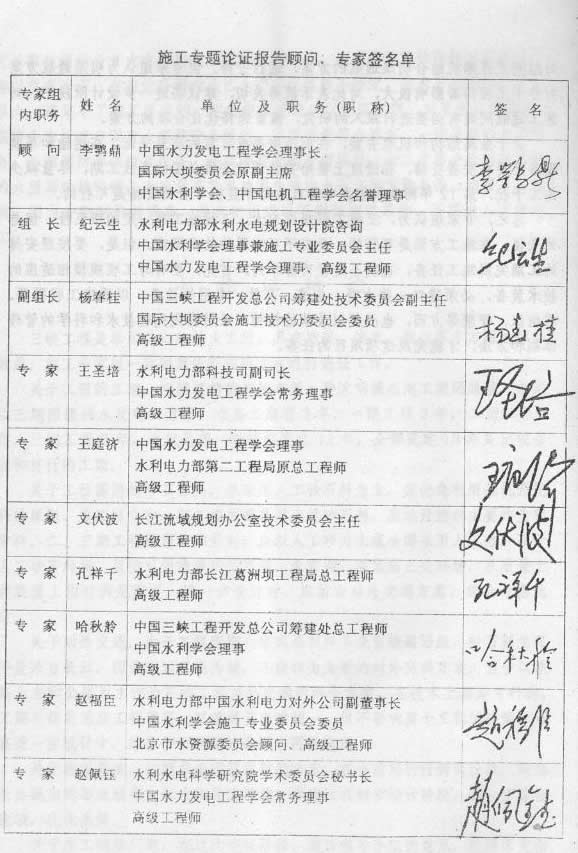 施工专题论证报告顾问、专家签名单
专家组内职务 姓名 单位及职务(职称) 签名
顾问 李鹗鼎 中国水力发电工程学会理事长
国际大坝委员会原副主席
中国水利学会、中国电机工程学会名誉理事
李鹗鼎
组长 纪云生 水利电力部水利水电规划设计院咨询
中国水利学会理事兼施工专业委员会主任
中国水力发电工程学会理事、高级工程师
纪云生
副组长 杨睿桂 中国三峡工程开发总公司筹建处技术委员会副主任
国际大坝委员会施工技术分委员会委员
高级工程师
专家 王圣培 水利电力部科技司副司长
中国水力发电工程学会常务理事
高级工程师
王圣培
专家 王庭济 中国水力发电工程学会理事
水利电力部第二工程局原总工程师
高级工程师
王庭济
专家 文伏波 长江流域规划办公室技术委员会主任
高级工程师
文伏波
专家 孔祥千 水利电力部长江葛洲坝工程局总工程师
高级工程师
孔祥千
专家 哈秋舲 中国三峡工程开发总公司筹建处总工程师
中国水利学会理事
高级工程师
哈秋舲
专家 赵福臣 水利电力部中国水利电力对外公司副董事长
中国水利学会施工专业委员会委员
北京市水资源委员会顾问、高级工程师
赵福臣
专家 赵佩钰 水利水电科学研究院学术委员会秘书长
中国水力发电工程学会常务理事
高级工程师
赵佩钰